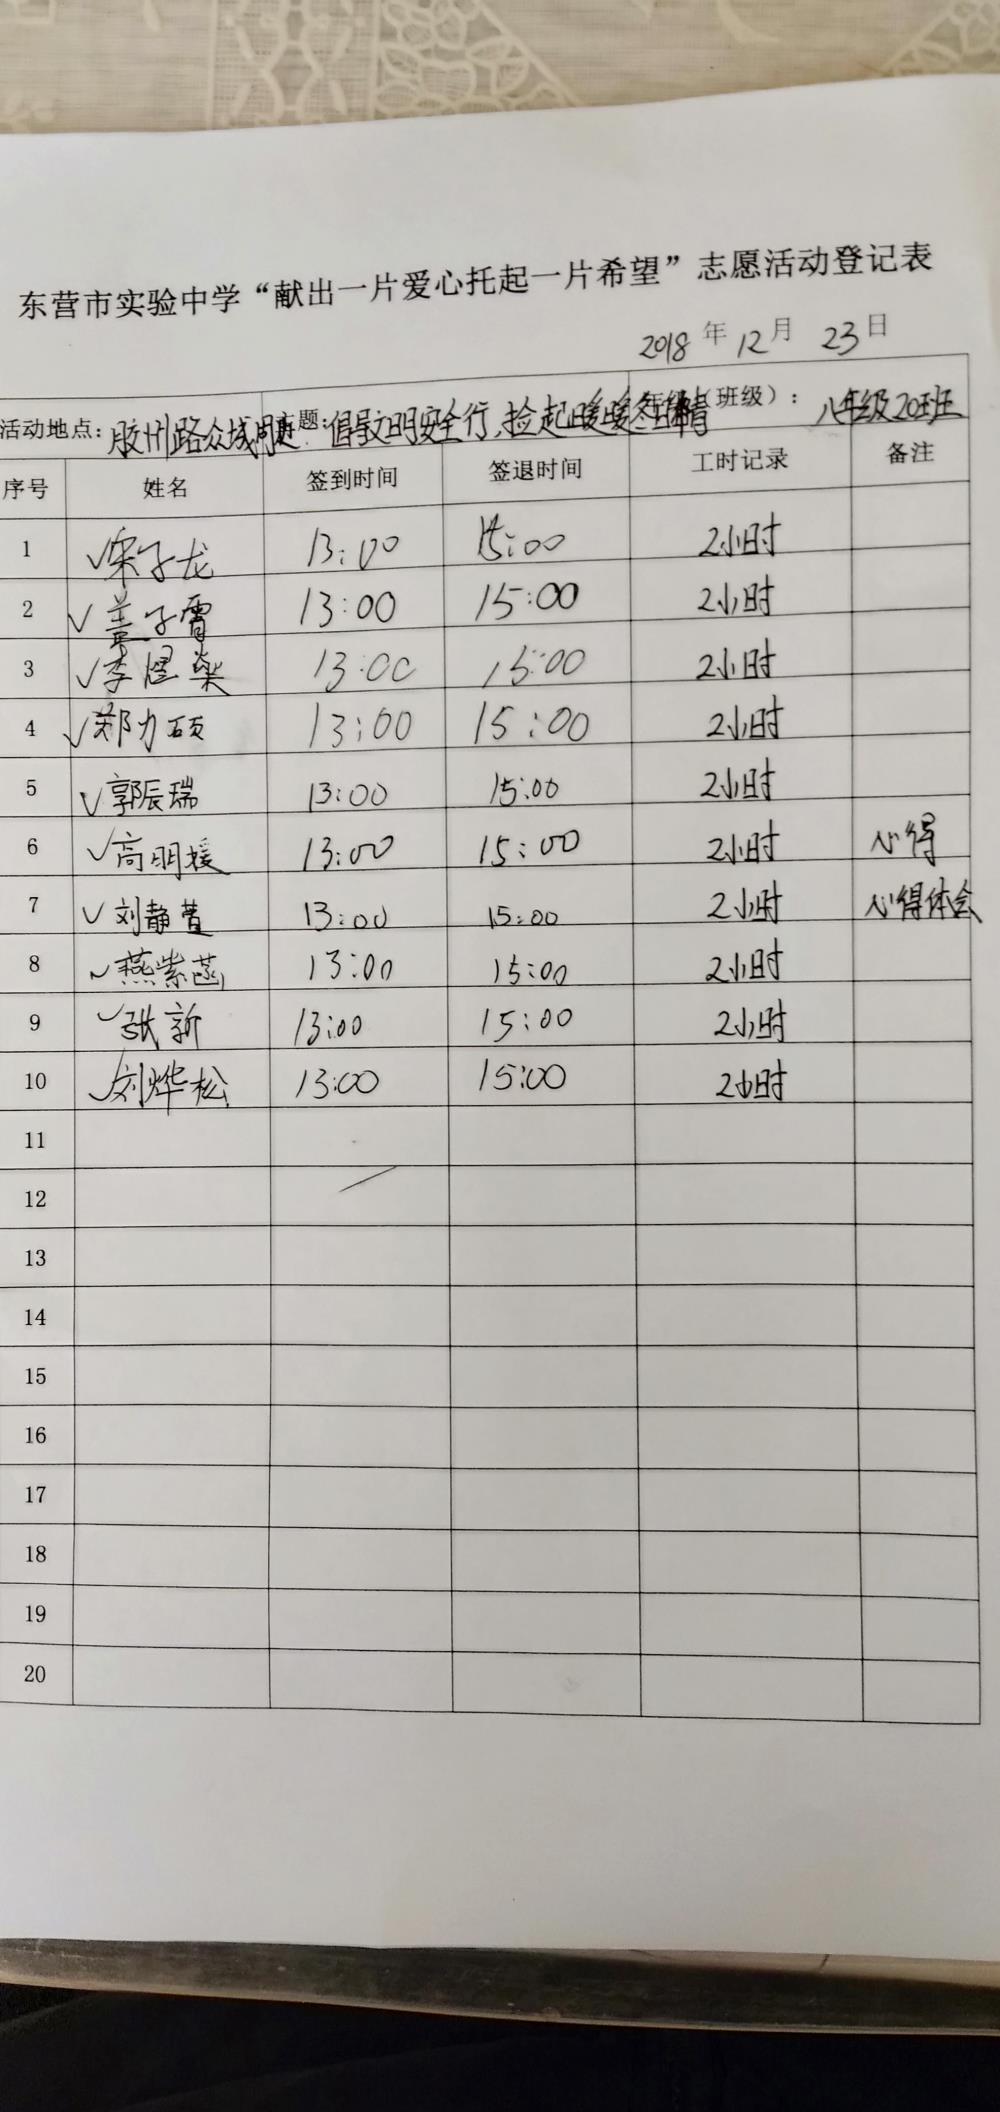 东营市实验中学“献出一片爱心托起一片希望”志愿活动登记表
2018年12月23日
活动地点：胶州路众城周边 主题：倡导文明安全行，捡起暖暖冬日情 年级（班级）：八年级20班
序号 姓名 签到时间 签退时间 工时记录 备注
1 ✓宋子龙 13:00 15:00 2小时
2 ✓盖子霄 13:00 15:00 2小时
3 ✓李煜燊 13:00 15:00 2小时
4 ✓郑力硕 13:00 15:00 2小时
5 ✓郭辰瑞 13:00 15:00 2小时
6 ✓高明媛 13:00 15:00 2小时 心得
7 ✓刘静萱 13:00 15:00 2小时 心得体会
8 ✓燕紫菡 13:00 15:00 2小时
9 ✓张新 13:00 15:00 2小时
10 ✓刘烨松 13:00 15:00 2小时
11
12
13
14
15
16
17
18
19
20